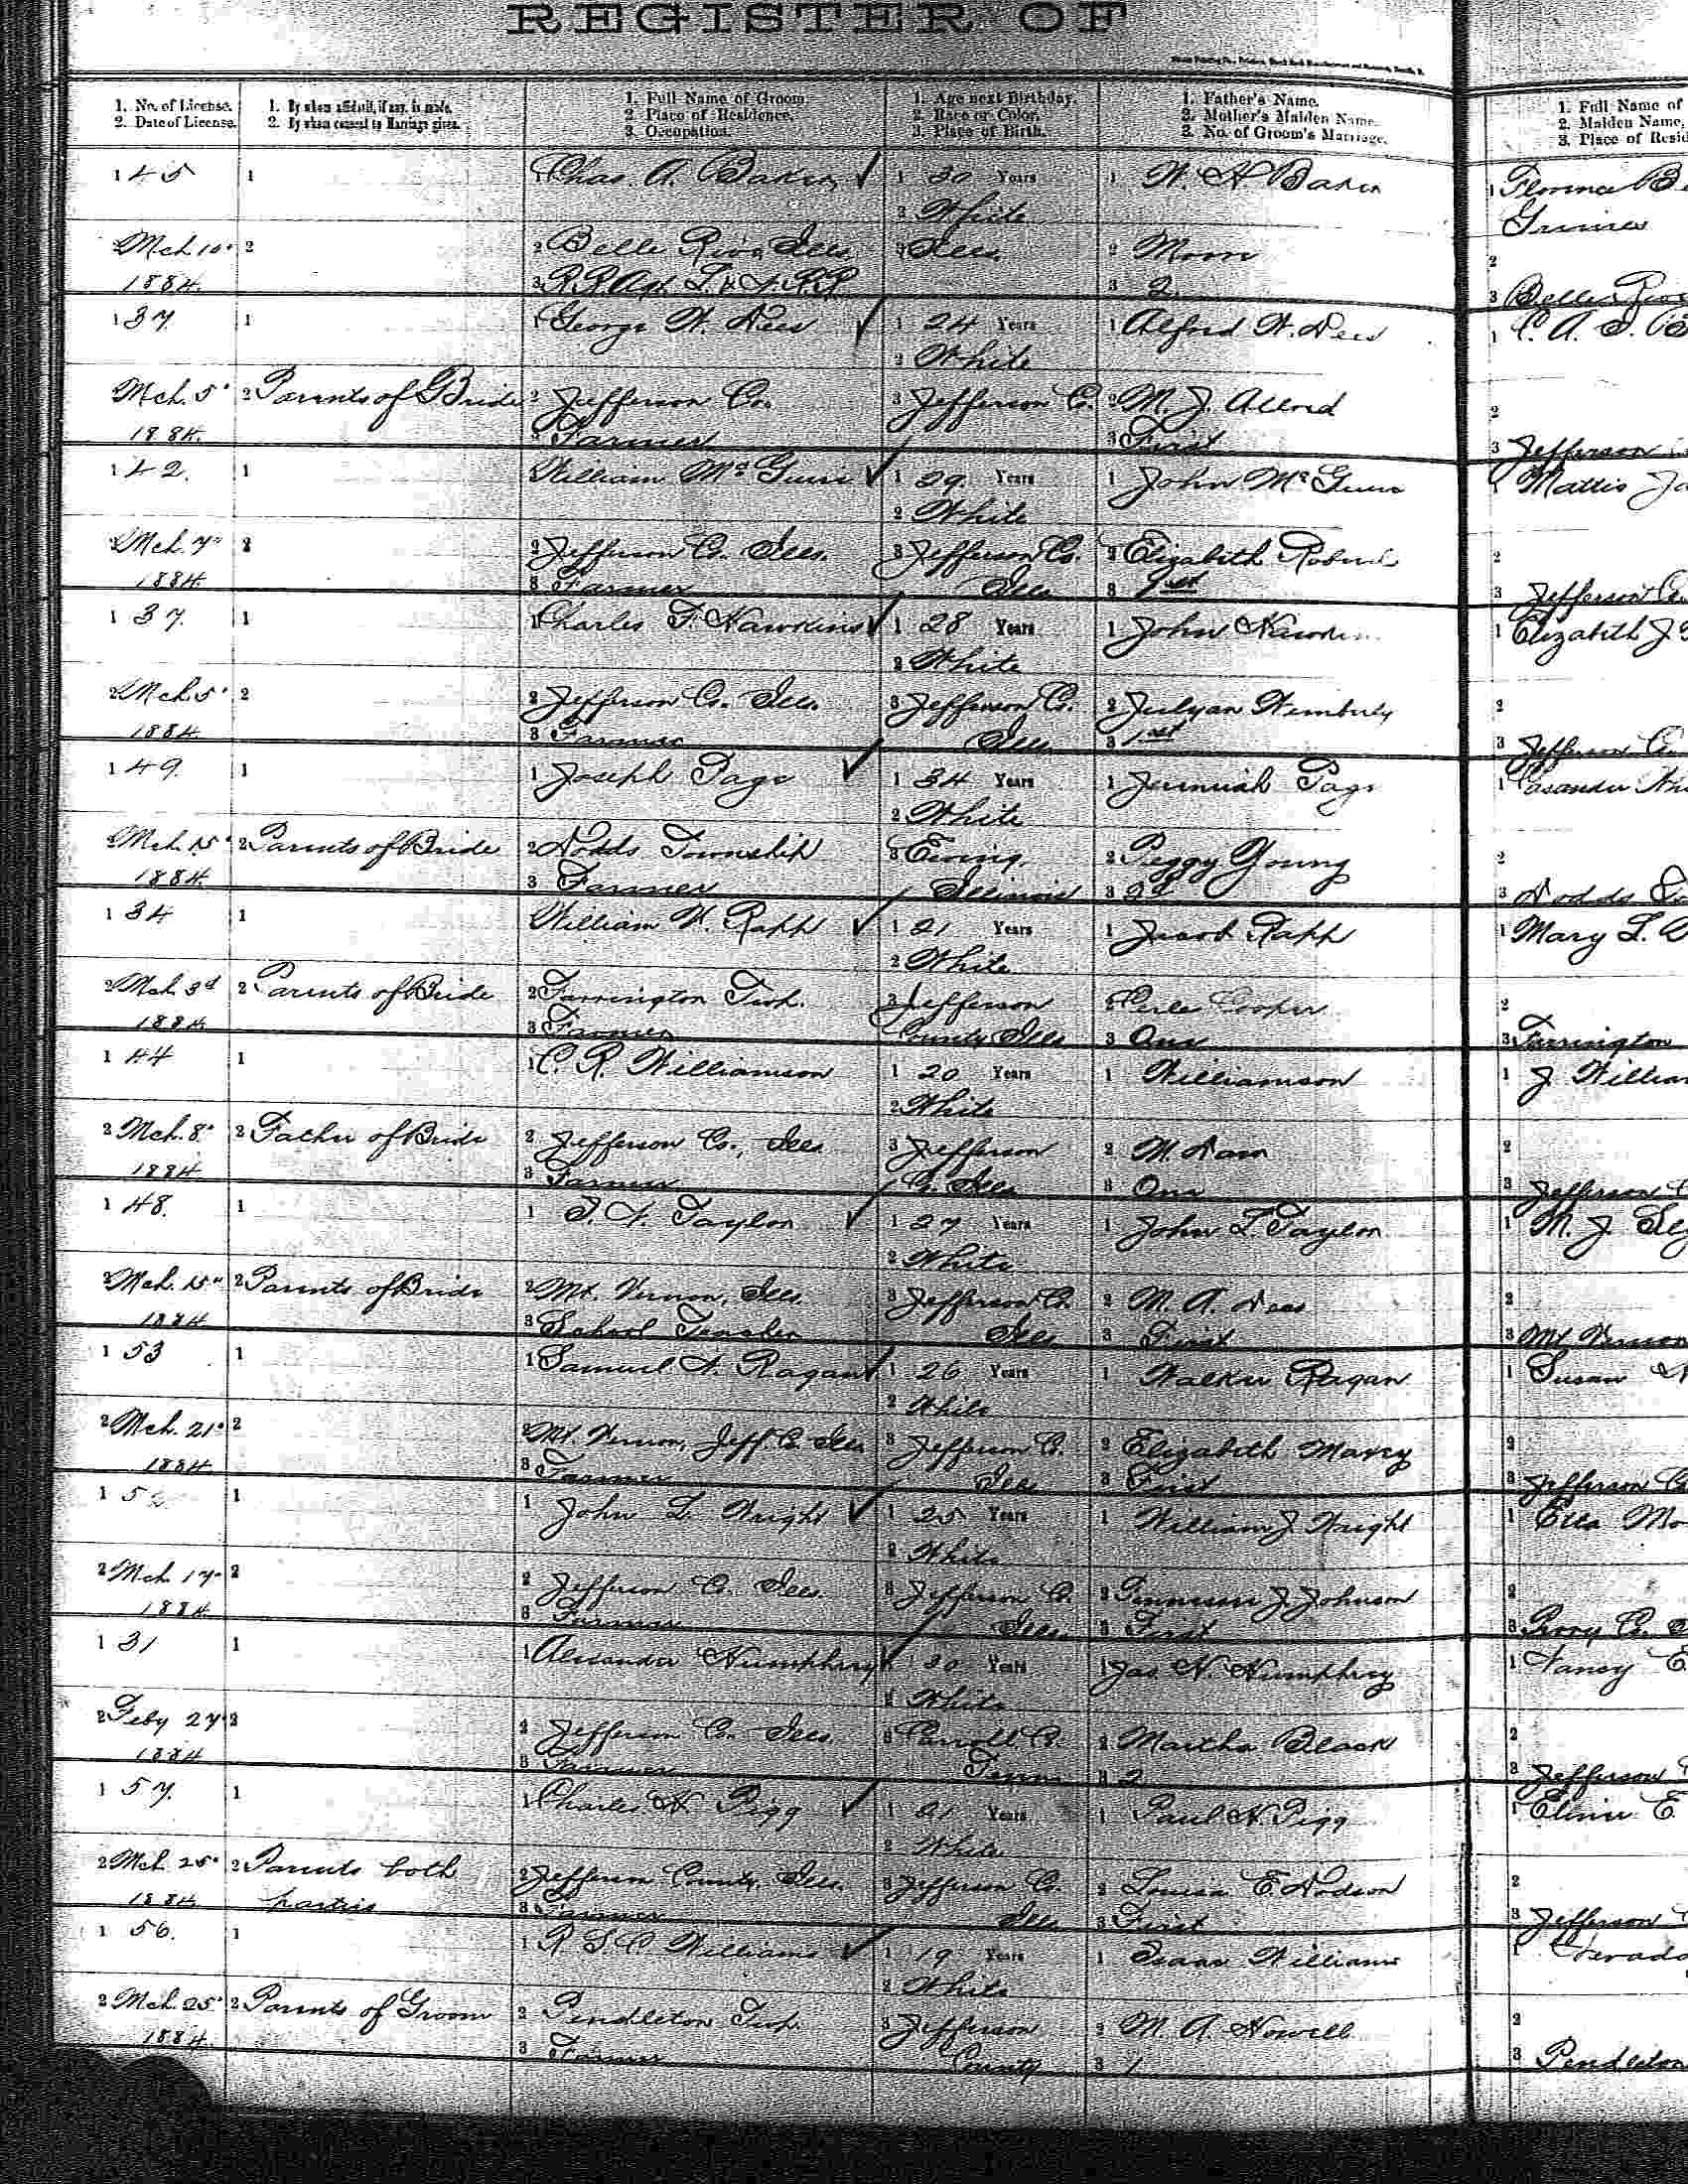 REGISTER OF
1. No. of License. 1. By whom affidavit, if any, is made. 1. Full Name of Groom. 1. Age next Birthday. 1. Father's Name. 1. Full Name of
2. Date of License. 2. By whom consent to Marriage given. 2. Place of Residence. 2. Race or Color. 2. Mother's Maiden Name. 2. Maiden Name,
3. Occupation. 3. Place of Birth. 3. No. of Groom's Marriage. 3. Place of Resid
1 45 1 1 Chas. A. Baker 1 30 Years 1 W. H Baker 1 Florence
2 White Grimes
2 Mch 10" 2 2 Belle Rive Ills. 3 Ills. 2 Morn 2
1884. 3 R.R. Agt. L. & N. RR 3 2 3 Belle Rive
1 37 1 1 George W. Dees 1 24 Years 1 Alford W. Dees 1 C. A. S.
2 White
2 Mch. 5" 2 Parents of Bride 2 Jefferson Co. 3 Jefferson C. 2 M. J. Allred 2
1884. 3 Farmer 3 First 3 Jefferson
1 42. 1 William Mc 1 29. Years 1 John Mc 1 Mattie Ja
2 White
2 Mch. 7" 2 2 Jefferson Co. Ills. 3 Jefferson Co. 2 Elizabeth 2
1884. 3 Farmer Ills 3 1st 3 Jefferson Co.
1 37. 1 1 Charles F. Hawkins 1 28 Years 1 John 1 Elizabeth J
2 White
2 Mch. 5" 2 2 Jefferson Co. Ills. 3 Jefferson Co. 2 Julyan Wimberly 2
1884 3 Farmer Ills 3 1st 3 Jefferson Co.
1 49. 1 1 Joseph Page 1 34 Years 1 Jeremiah Page 1 Casander
2 White
2 Mch 15" 2 Parents of Bride 2 Dodds Township 3 Ewing. 2 Peggy Young 2
1884. 3 Farmer Illinois 3 2d 3 Dodds
1 34 1 William W. Rapp 1 21 Years 1 Jacob Rapp 1 Mary L.
2 White
2 Mch 3d 2 Parents of Bride 2 Farrington Twp. 3 Jefferson 2 Cooper 2
1884 3 Farmer County Ills 3 One 3 Farrington
1 44 1 1 C. R. Williamson 1 20 Years 1 Williamson 1 J William
2 White
2 Mch. 8" 2 Father of Bride 2 Jefferson Co., Ills. 3 Jefferson 2 M. 2
1884 3 Farmer Co. Ills 3 One 3 Jefferson
1 48. 1 1 Taylor 1 27 Years 1 John L. Taylor 1 M. J.
2 White
2 Mch. 15" 2 Parents of Bride 2 Mt. Vernon, Ills. 3 Jefferson Co 2 M. A. Dees 2
1884 3 School Teacher Ills. 3 First 3 Mt Vernon
1 53 1 1 Samuel Ragan 1 26 Years 1 Walker Ragan 1 Susan
2 White
2 Mch. 21" 2 2 Mt. Vernon, Jeff. Co. Ills. 3 Jefferson Co. 2 Elizabeth Maxey 2
1884 3 Farmer Ills 3 First 3 Jefferson Co
1 1 1 John L. Wright 1 25 Years 1 William J Wright 1
2 White
2 Mch 17" 2 2 Jefferson Co. Ills. 3 Jefferson Co. 2 J Johnson 2
1884 3 Farmer Ills. 3 First 3 Perry Co.
1 31 1 1 Alexander Humphrey 1 30 Years 1 Jas N. Humphrey 1 Nancy E
2 White
2 Feby 27" 2 2 Jefferson Co. Ills. 3 Carroll Co. 2 Martha Black 2
1884 3 Farmer Tenn 3 2 3 Jefferson
1 57. 1 1 Charles H Pigg 1 21 Years 1 Paul H. Pigg 1 E.
2 White
2 Mch 25" 2 Parents both 2 Jefferson County, Ills. 3 Jefferson Co. 2 Louisa E. Dodson 2
1884 parties 3 Farmer Ills 3 First 3 Jefferson
1 56. 1 1 R S C Williams 1 19 Years 1 Isaac Williams 1
2 White
2 Mch. 25" 2 Parents of Groom 2 Pendleton Twp. 3 Jefferson 2 M. A. Howell 2
1884 3 Farmer County 3 1 3 Pendleton